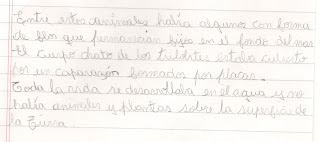 Entre estos animales había algunos con forma
de flor que permanecían fijos en el fondo del mar.
El cuerpo chato de los trilobites estaba cubierto
por un caparazón formados por placas.
Toda la vida se desarrollaba en el agua y no
había animales y plantas sobre la superficie de
la Tierra.